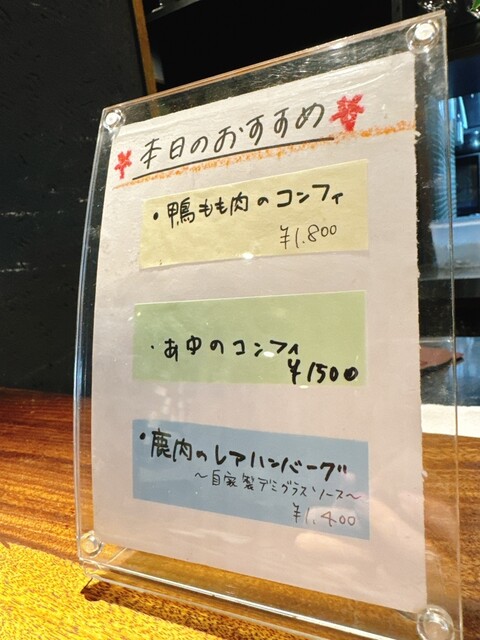 本日のおすすめ
・鴨もも肉のコンフィ
¥1.800
・あゆのコンフィ
¥1500
・鹿肉のレアハンバーグ
〜自家製デミグラスソース〜
¥1.400